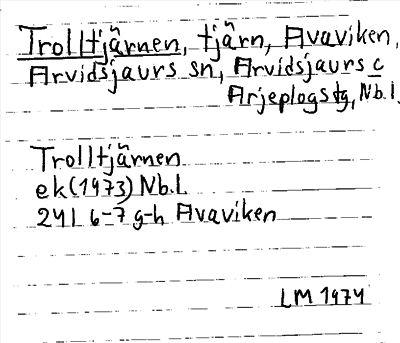 Trolltjärnen, tjärn, Avaviken,
Arvidsjaurs sn, Arvidsjaurs o
Arjeplogs tg, Nb.l.
Trolltjärnen
ek(1973) Nb.l.
24I 6-7 g-h Avaviken
LM 1974